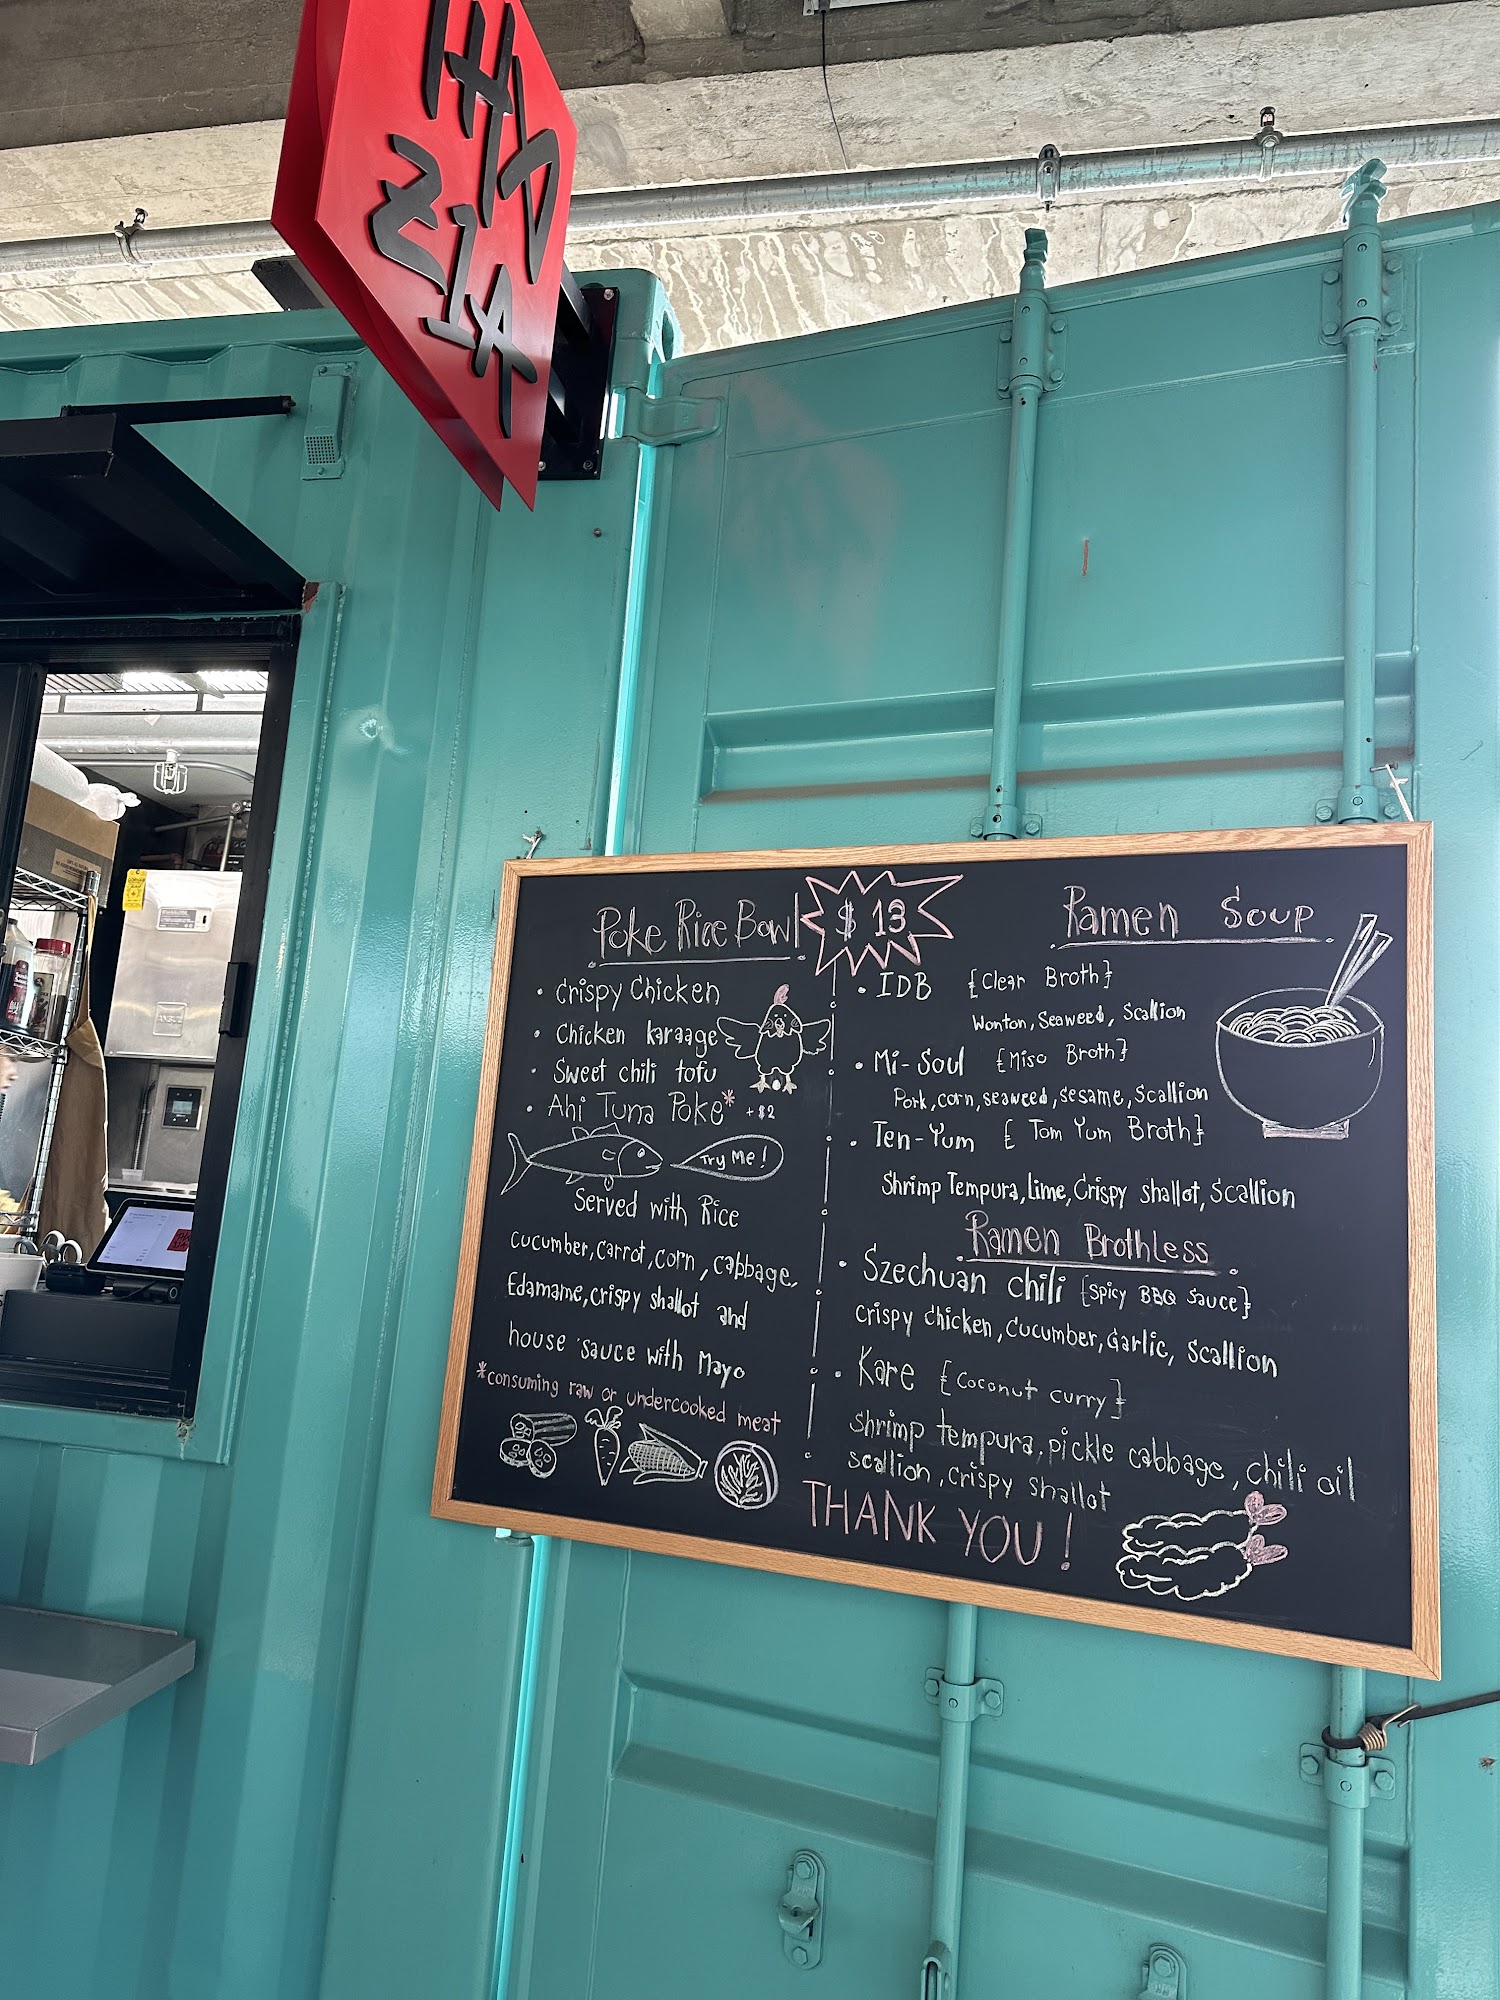 Poke Rice Bowl
$13
• Crispy Chicken
• Chicken karaage
• Sweet chili tofu
• Ahi Tuna Poke* +$2
Try Me!
Served with Rice
cucumber, carrot, corn, cabbage,
Edamame, crispy shallot and
house sauce with Mayo
*consuming raw or undercooked meat
Ramen Soup
• IDB {Clear Broth}
Wonton, Seaweed, Scallion
• Mi-Soul {Miso Broth}
Pork, corn, seaweed, sesame, Scallion
• Ten-Yum { Tom Yum Broth}
Shrimp Tempura, Lime, Crispy shallot, Scallion
Ramen Brothless
• Szechuan chili {Spicy BBQ Sauce}
crispy chicken, cucumber, Garlic, Scallion
• Kare { Coconut curry }
Shrimp tempura, pickle cabbage, chili oil
scallion, crispy shallot
THANK YOU!